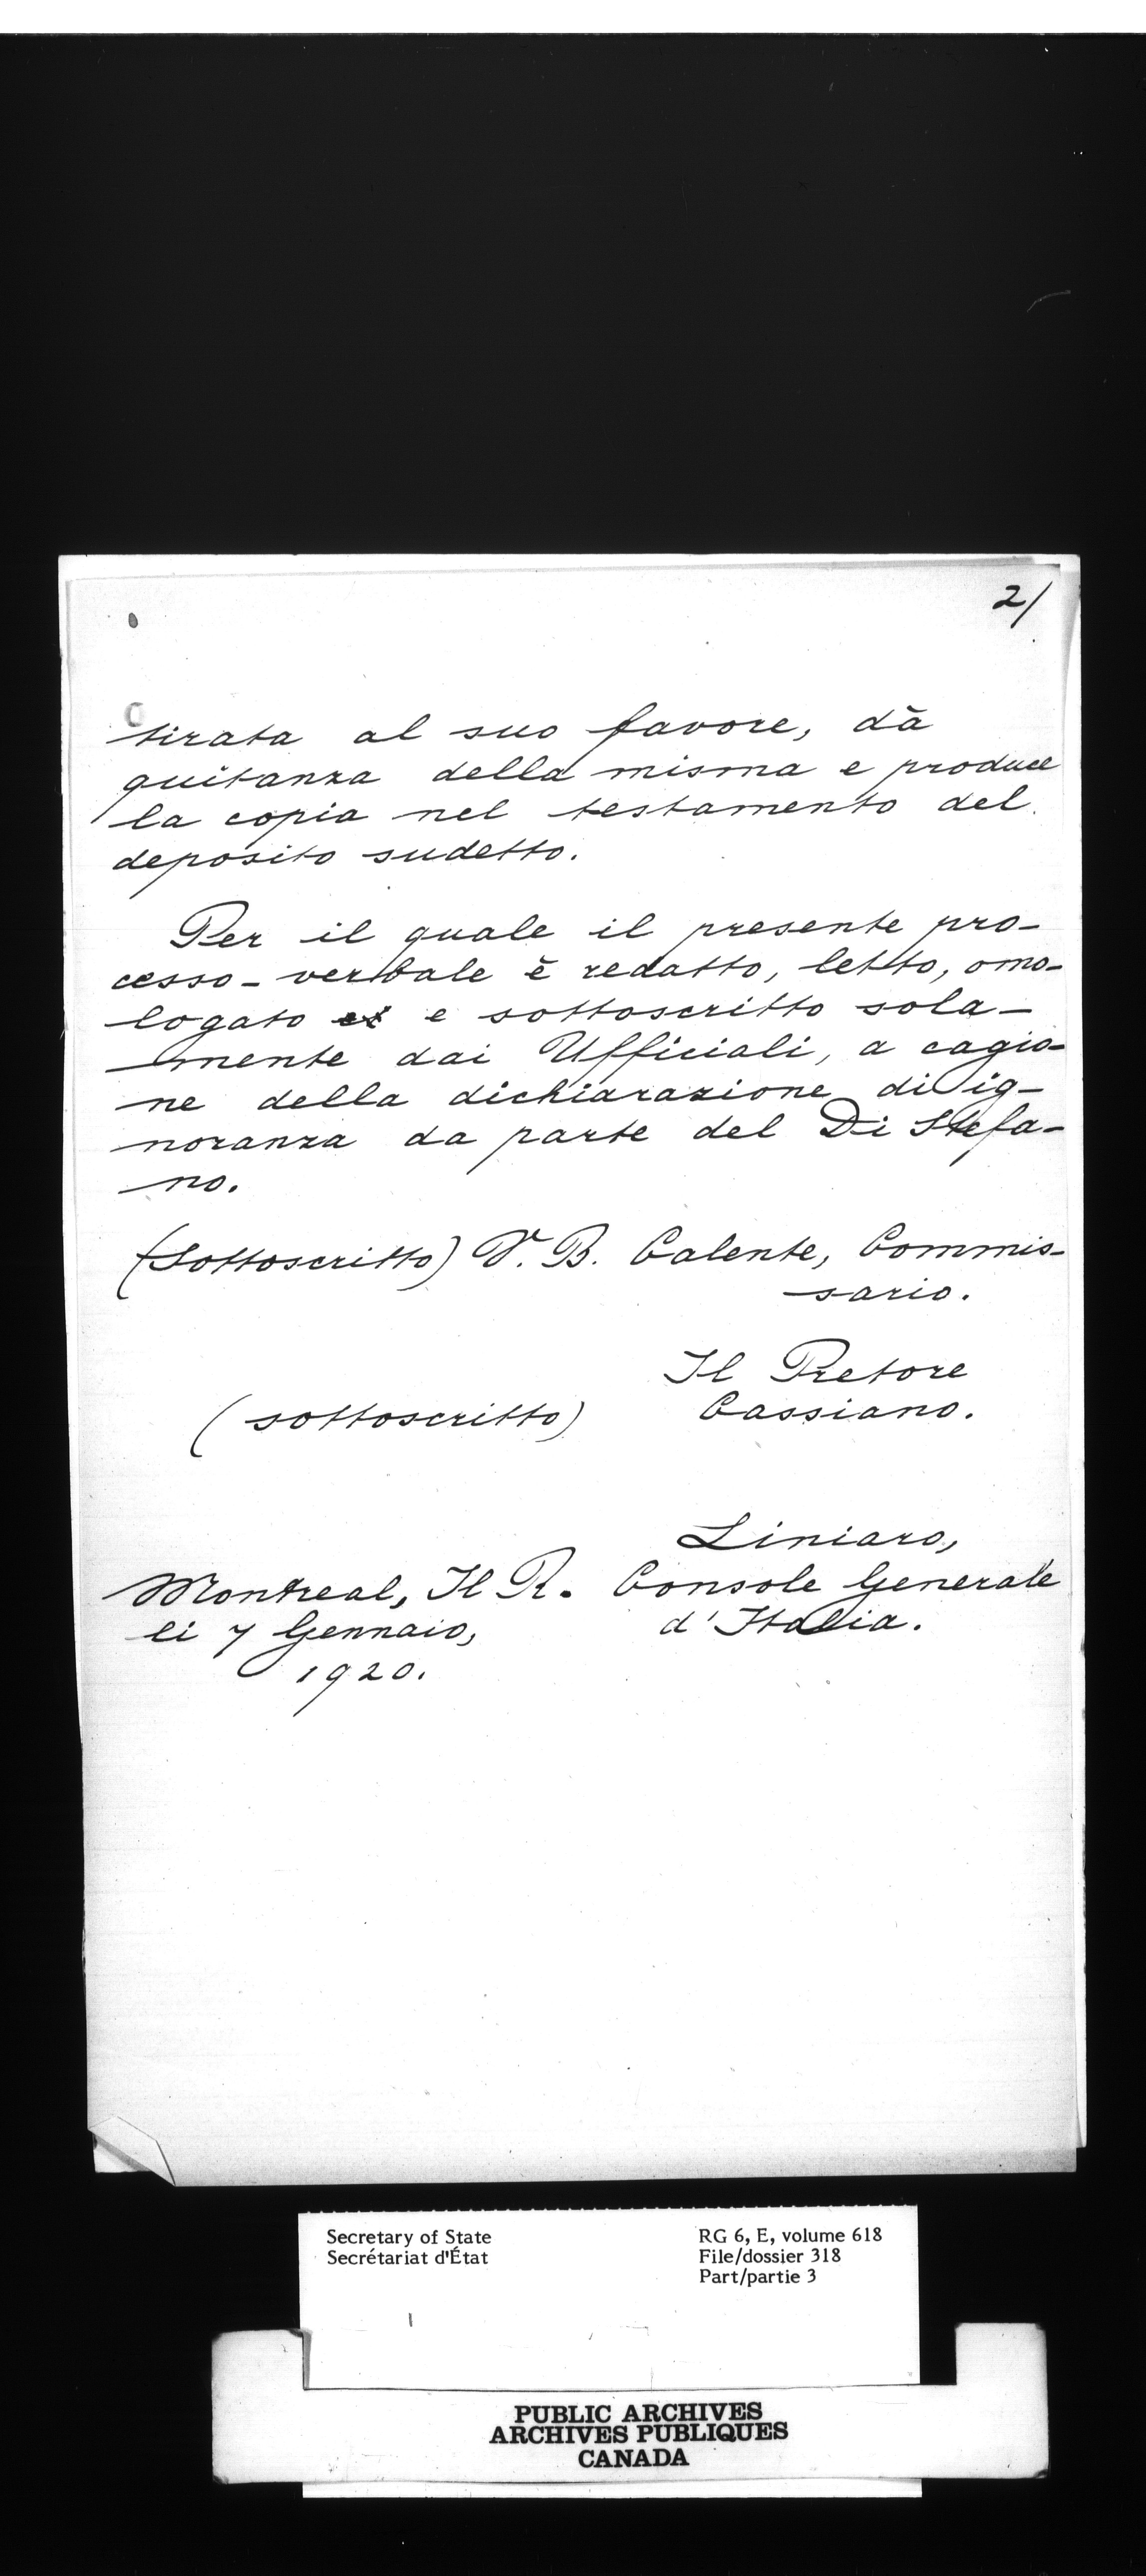 2/
tirata al suo favore, dà
quitanza della misma e produce
la copia nel testamento del
deposito sudetto.
Per il quale il presente pro-
cesso-verbale è redatto, letto, omo-
logato e sottoscritto sola-
mente dai Ufficiali, a cagio-
ne della dichiarazione di ig-
noranza da parte del Di Stefa-
no.
(Sottoscritto) V. B. Calente, Commis-
sario.
Il Pretore
(sottoscritto) Cassiano.
Liniaro,
Montreal, Il R. Console Generale
li 7 Gennaio, d'Italia.
1920.
Secretary of State RG 6, E, volume 618
Secrétariat d'État File/dossier 318
Part/partie 3
PUBLIC ARCHIVES
ARCHIVES PUBLIQUES
CANADA